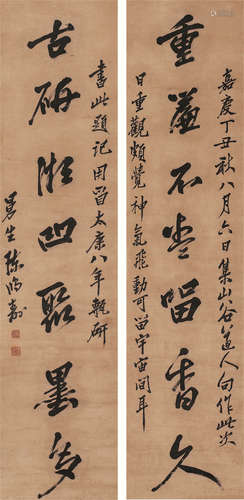 重簾不卷留香久
古研微凹聚墨多
嘉慶丁丑秋八月六日集山谷道人句作此次
日重觀頗覺神氣飛動可留宇宙間耳
書此題記用晉太康八年甎研
曼生陳鴻壽